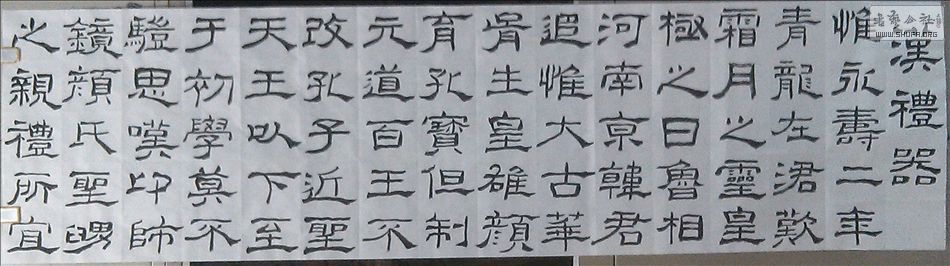 漢禮器
惟永壽二年
青龍在涒歎
霜月之靈皇
極之日魯相
河南京韓君
追惟大古華
胥生皇雄顏
育孔寶但制
元道百王不
改孔子近聖
天王以下至
于初學莫不
思嘆卬師
鏡顏氏聖舅
之親禮所宜
WWW.SHUFA.ORG